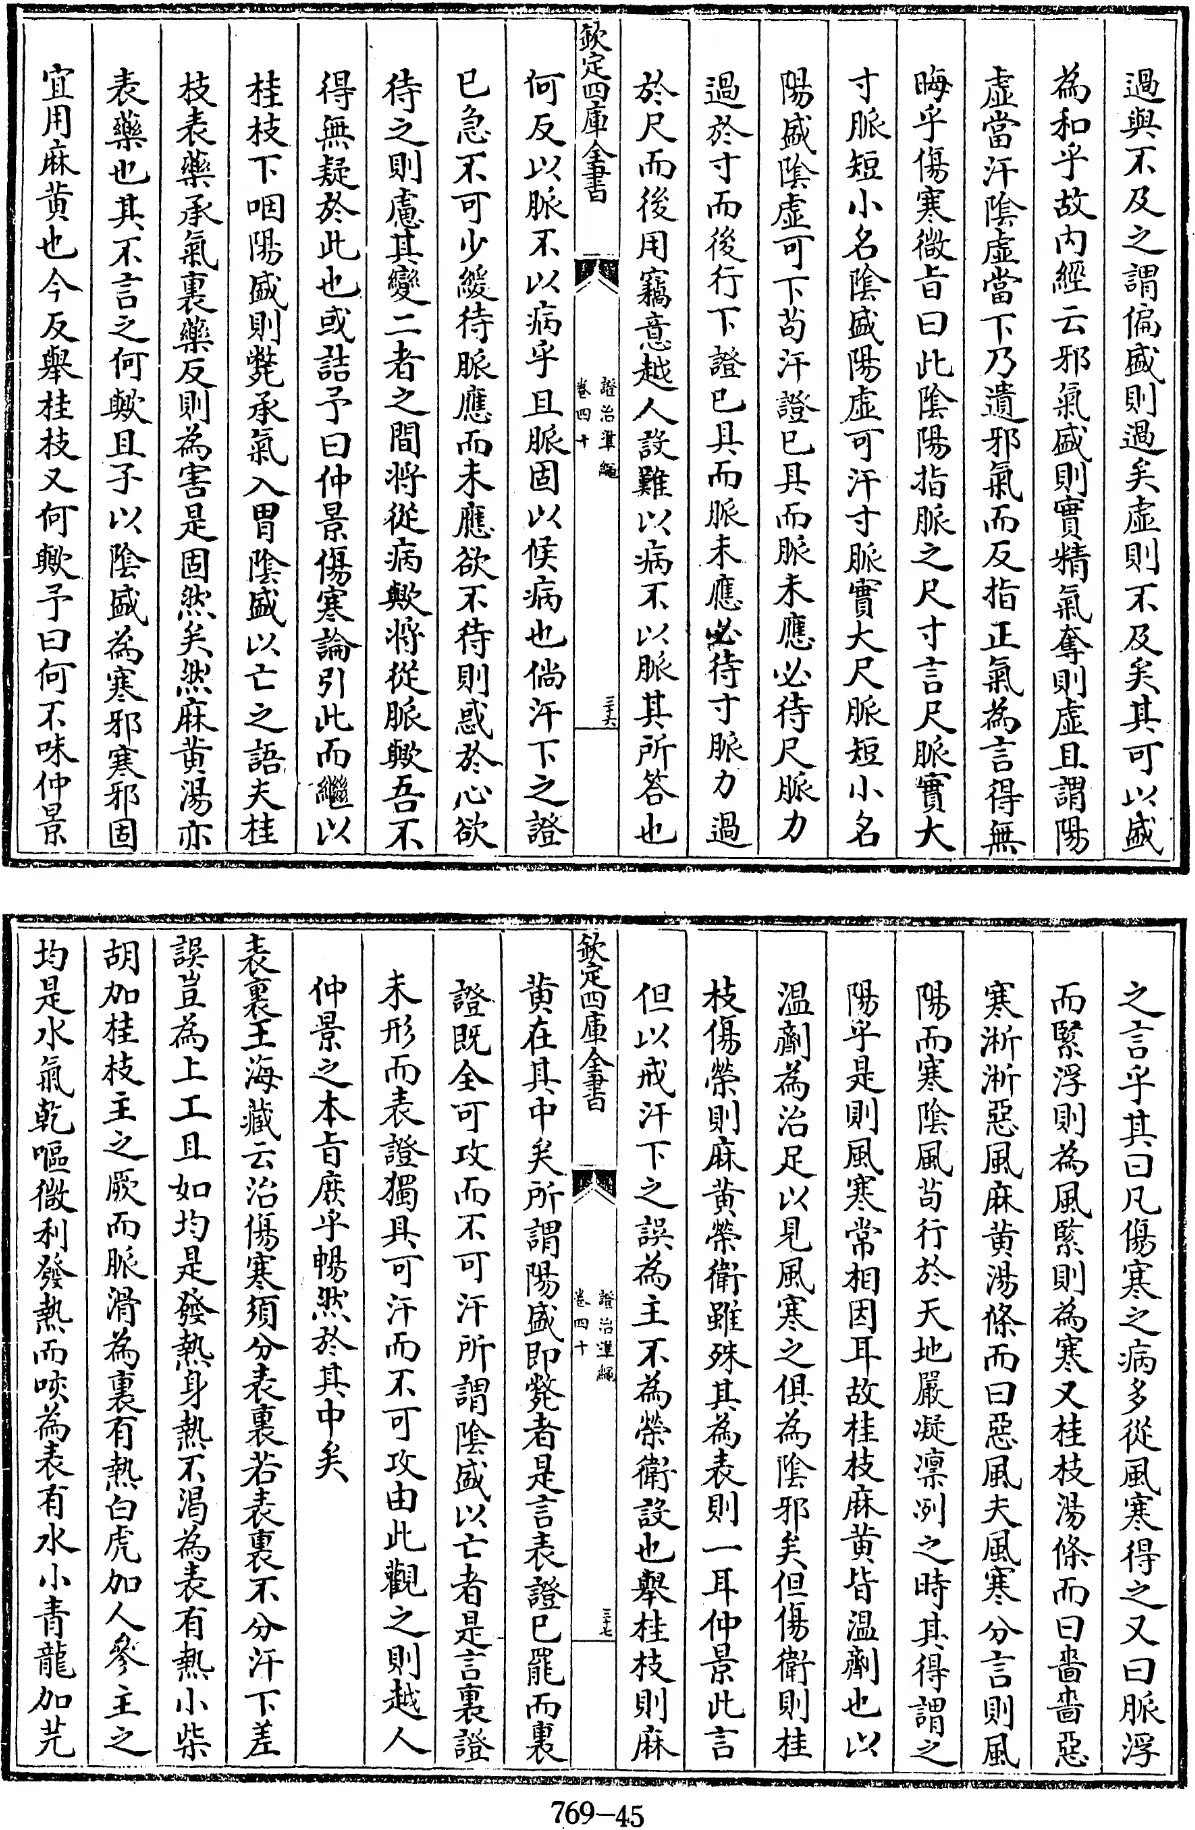 過與不及之謂偏盛則過矣虛則不及矣其可以盛
為和乎故内經云邪氣盛則實精氣奪則虛且謂陽
虛當汗陰虛當下乃遺邪氣而反指正氣為言得無
晦乎傷寒微旨曰此陰陽指脈之尺寸言尺脈實大
寸脈短小名陰盛陽虛可汗寸脈實大尺脈短小名
陽盛陰虛可下茍汗證已具而脈未應必待尺脈力
過於寸而後行下證已具而脈未應必待寸脈力過
於尺而後用竊意越人設難以病不以脈其所答也
欽定四庫全書
證治準繩
卷四十
三十六
何反以脈不以病乎且脈固以候病也倘汗下之證
已急不可少緩待脈應而未應欲不待則惑於心欲
待之則慮其變二者之間將從病歟將從脈歟吾不
得無疑於此也或詰予曰仲景傷寒論引此而繼以
桂枝下咽陽盛則斃承氣入胃陰盛以亡之語夫桂
枝表藥承氣裏藥反則為害是固然矣然麻黄湯亦
表藥也其不言之何歟且子以陰盛為寒邪寒邪固
宜用麻黄也今反舉桂枝又何歟予曰何不味仲景
之言乎其曰凡傷寒之病多從風寒得之又曰脈浮
而緊浮則為風緊則為寒又桂枝湯條而曰嗇嗇惡
寒淅淅惡風麻黄湯條而曰惡風夫風寒分言則風
陽而寒陰風茍行於天地嚴凝凛冽之時其得謂之
陽乎是則風寒常相因耳故桂枝麻黄皆温劑也以
温劑為治足以見風寒之俱為陰邪矣但傷衛則桂
枝傷榮則麻黄榮衛雖殊其為表則一耳仲景此言
但以戒汗下之誤為主不為榮衛設也舉桂枝則麻
欽定四庫全書
證治準繩
卷四十
三十七
黄在其中矣所謂陽盛即斃者是言表證已罷而裏
證既全可攻而不可汗所謂陰盛以亡者是言裏證
未形而表證獨具可汗而不可攻由此觀之則越人
仲景之本旨庶乎暢然於其中矣
表裏王海藏云治傷寒須分表裏若表裏不分汗下差
誤豈為上工且如均是發熱身熱不渴為表有熱小柴
胡加桂枝主之厥而脈滑為裏有熱白虎加人參主之
均是水氣乾嘔微利發熱而咳為表有水小青龍加芫
769-45